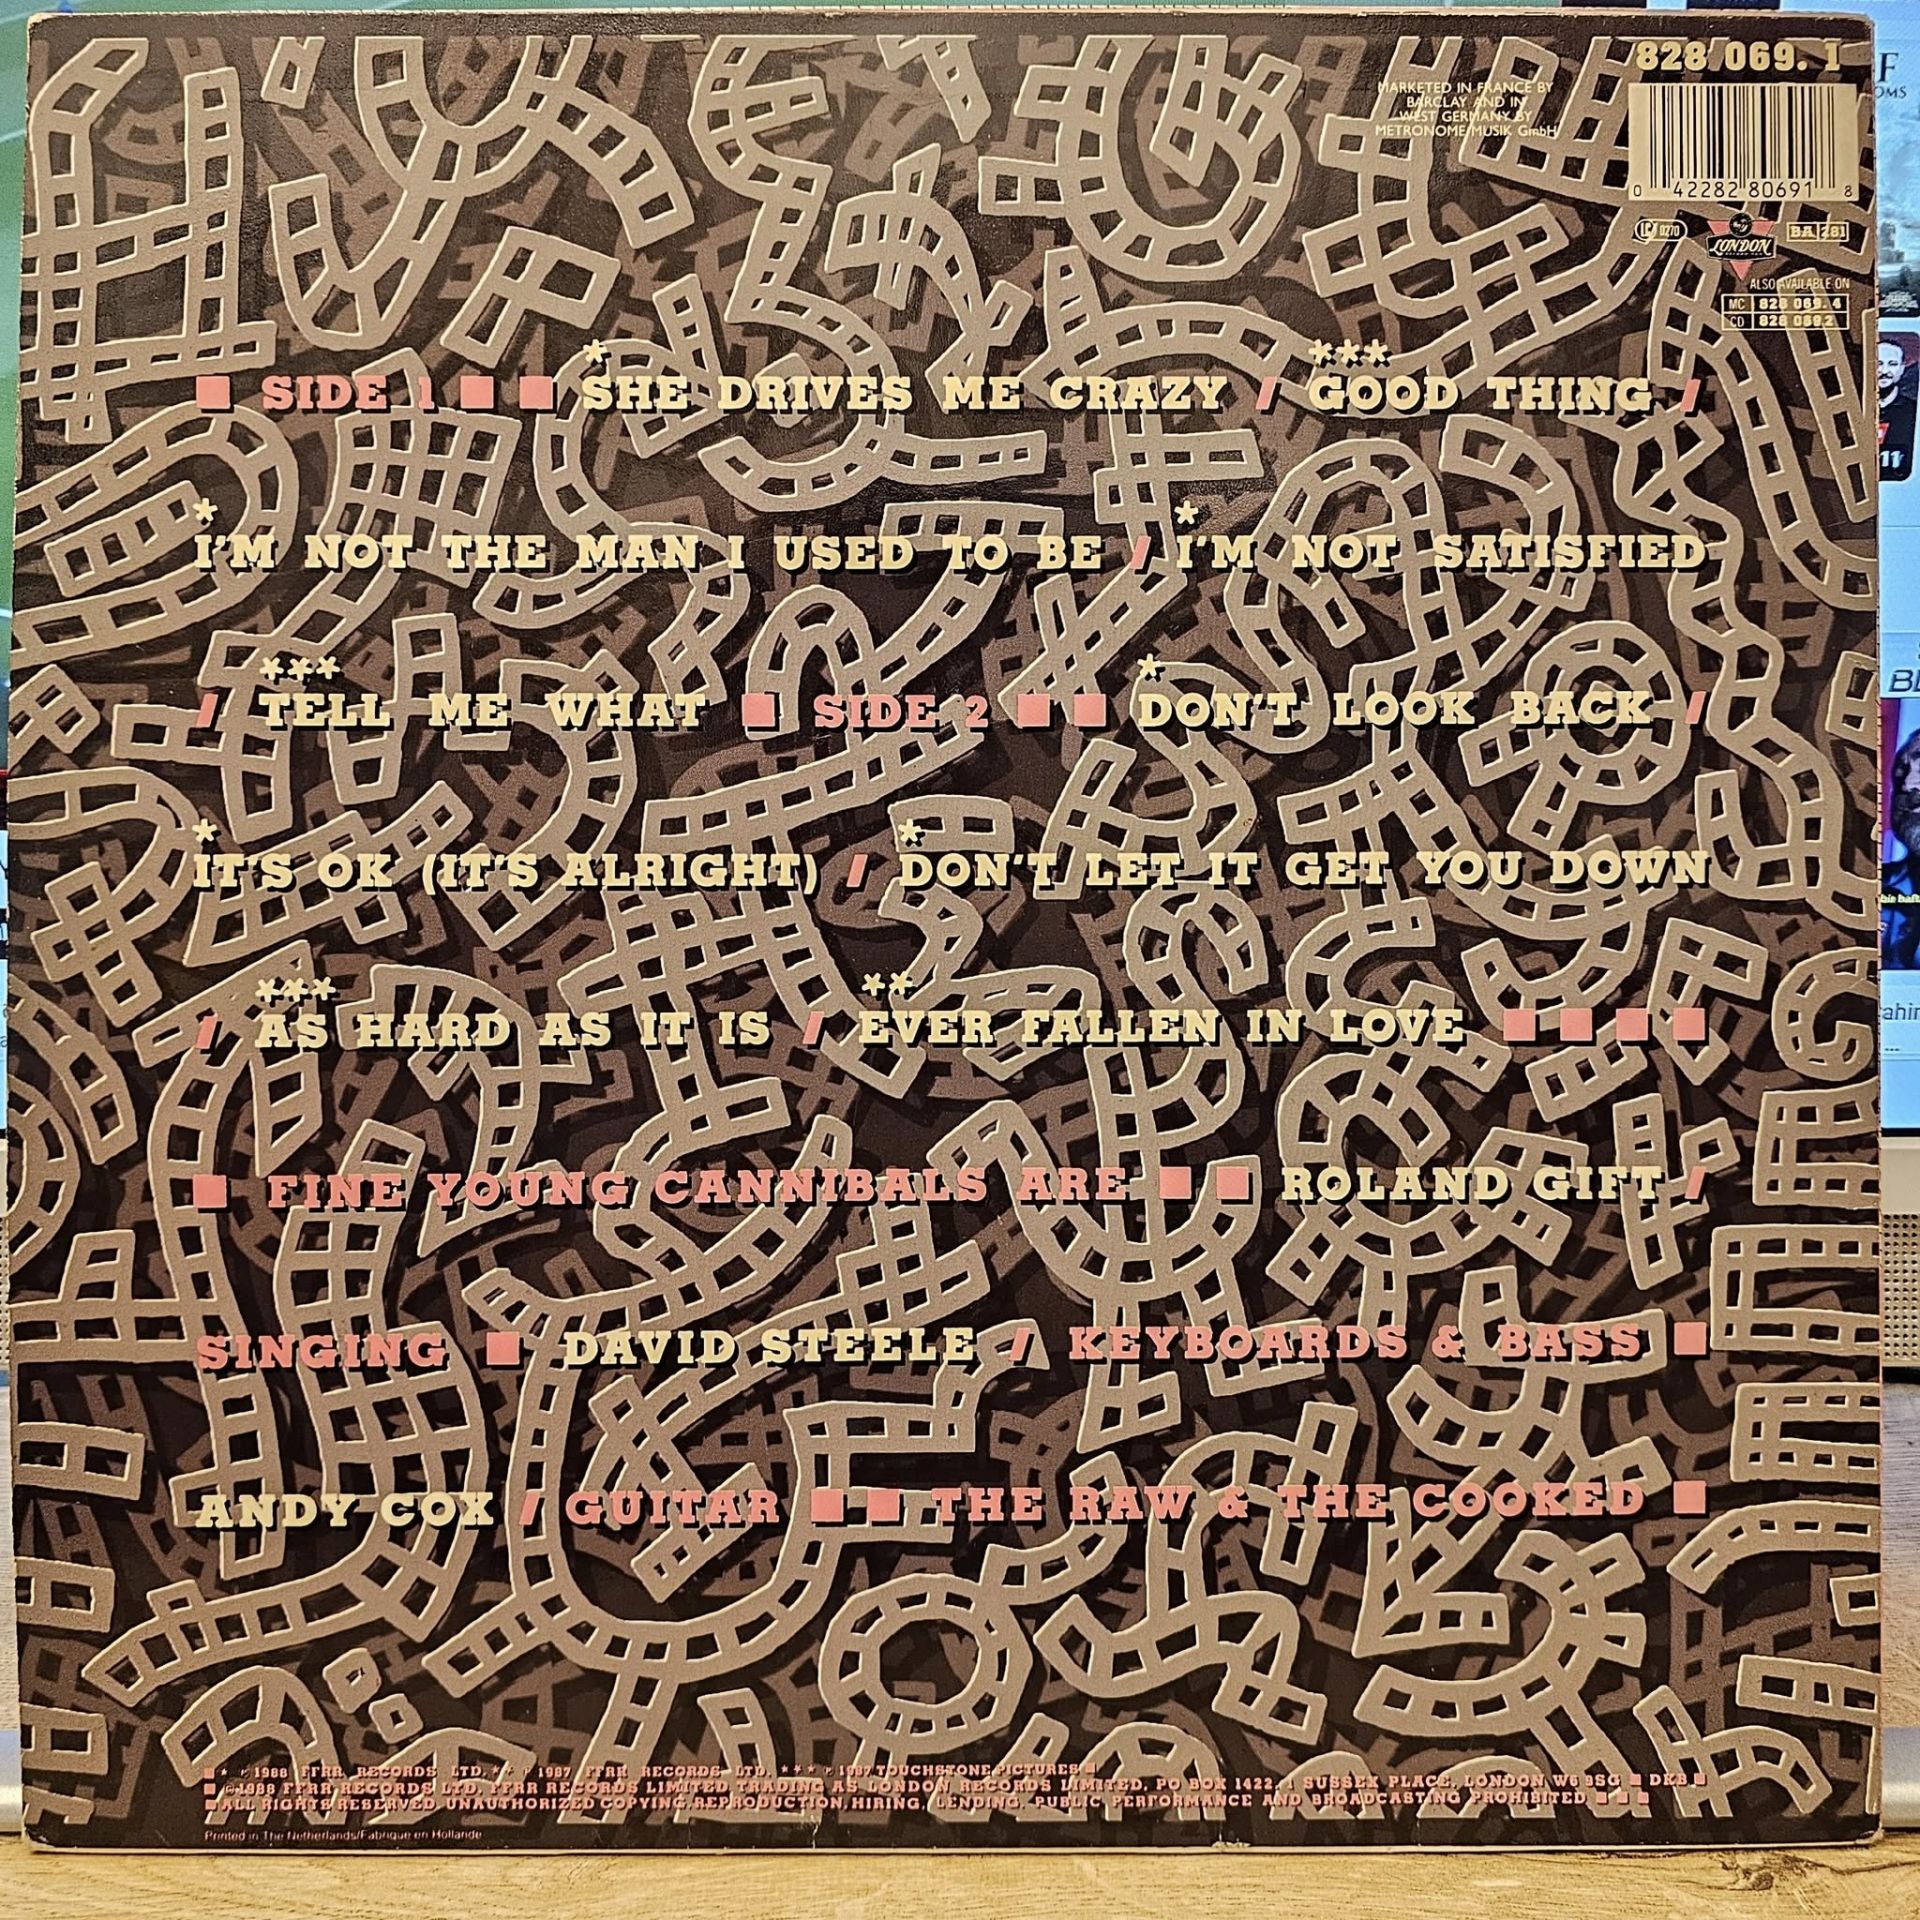 828 069. 1
MARKETED IN FRANCE BY
BARCLAY AND IN
WEST GERMANY BY
METRONOME MUSIK GmbH
0 42282 80691 8
LP 0270
LONDON
BA 281
ALSO AVAILABLE ON
MC 828 069. 4
CD 828 069.2
* ***
■ SIDE 1 ■ ■ SHE DRIVES ME CRAZY / GOOD THING /
* *
I'M NOT THE MAN I USED TO BE / I'M NOT SATISFIED
*** *
/ TELL ME WHAT ■ SIDE 2 ■ ■ DON'T LOOK BACK /
* *
IT'S OK (IT'S ALRIGHT) / DON'T LET IT GET YOU DOWN
*** **
/ AS HARD AS IT IS / EVER FALLEN IN LOVE ■ ■ ■ ■
■ FINE YOUNG CANNIBALS ARE ■ ■ ROLAND GIFT /
SINGING ■ DAVID STEELE / KEYBOARDS & BASS ■
ANDY COX / GUITAR ■ ■ THE RAW & THE COOKED ■
■ * ℗ 1988 FFRR RECORDS LTD. ** ℗ 1987 FFRR RECORDS LTD. *** ℗ 1987 TOUCHSTONE PICTURES ■
■ ©1988 FFRR RECORDS LTD, FFRR RECORDS LIMITED TRADING AS LONDON RECORDS LIMITED, PO BOX 1422, 1 SUSSEX PLACE, LONDON W6 9SG ■ DKB ■
■ ALL RIGHTS RESERVED UNAUTHORIZED COPYING, REPRODUCTION, HIRING, LENDING, PUBLIC PERFORMANCE AND BROADCASTING PROHIBITED ■ ■ ■
Printed in The Netherlands/Fabriqué en Hollande